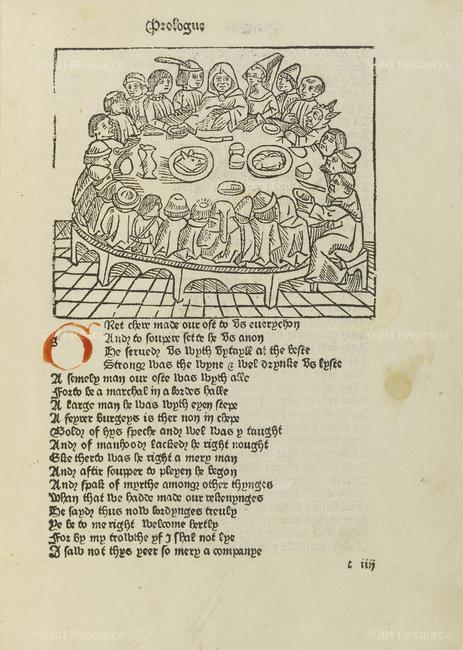 Prologue
Gret chere made our ost to vs euerychon
And to soupere sette he vs anon
He serued vs wyth vytayll at the beste
Strong was the wyne & wel drynke vs lyste
A semely man our oste was wyth alle
Forto be a marchal in a lordes halle
A large man he was wyth eyen stepe
A feyrer burgeys is ther non in chepe
Bold of hys speche and wel was y taught
And of manhood lacked he right nought
Eke therto was he right a mery man
And aftir souper to pleyen he began
And spak of myrthe among other thynges
Whan that we hadde made our rekenynges
He sayd thus now lordynges treuly
Ye be to me right welcome hertly
For by my trouthe yf I shal not lye
I saw not thys yeer so mery a companye
c iiij
© Art Resource
© Art Resource
© Art Resource
© Art Resource